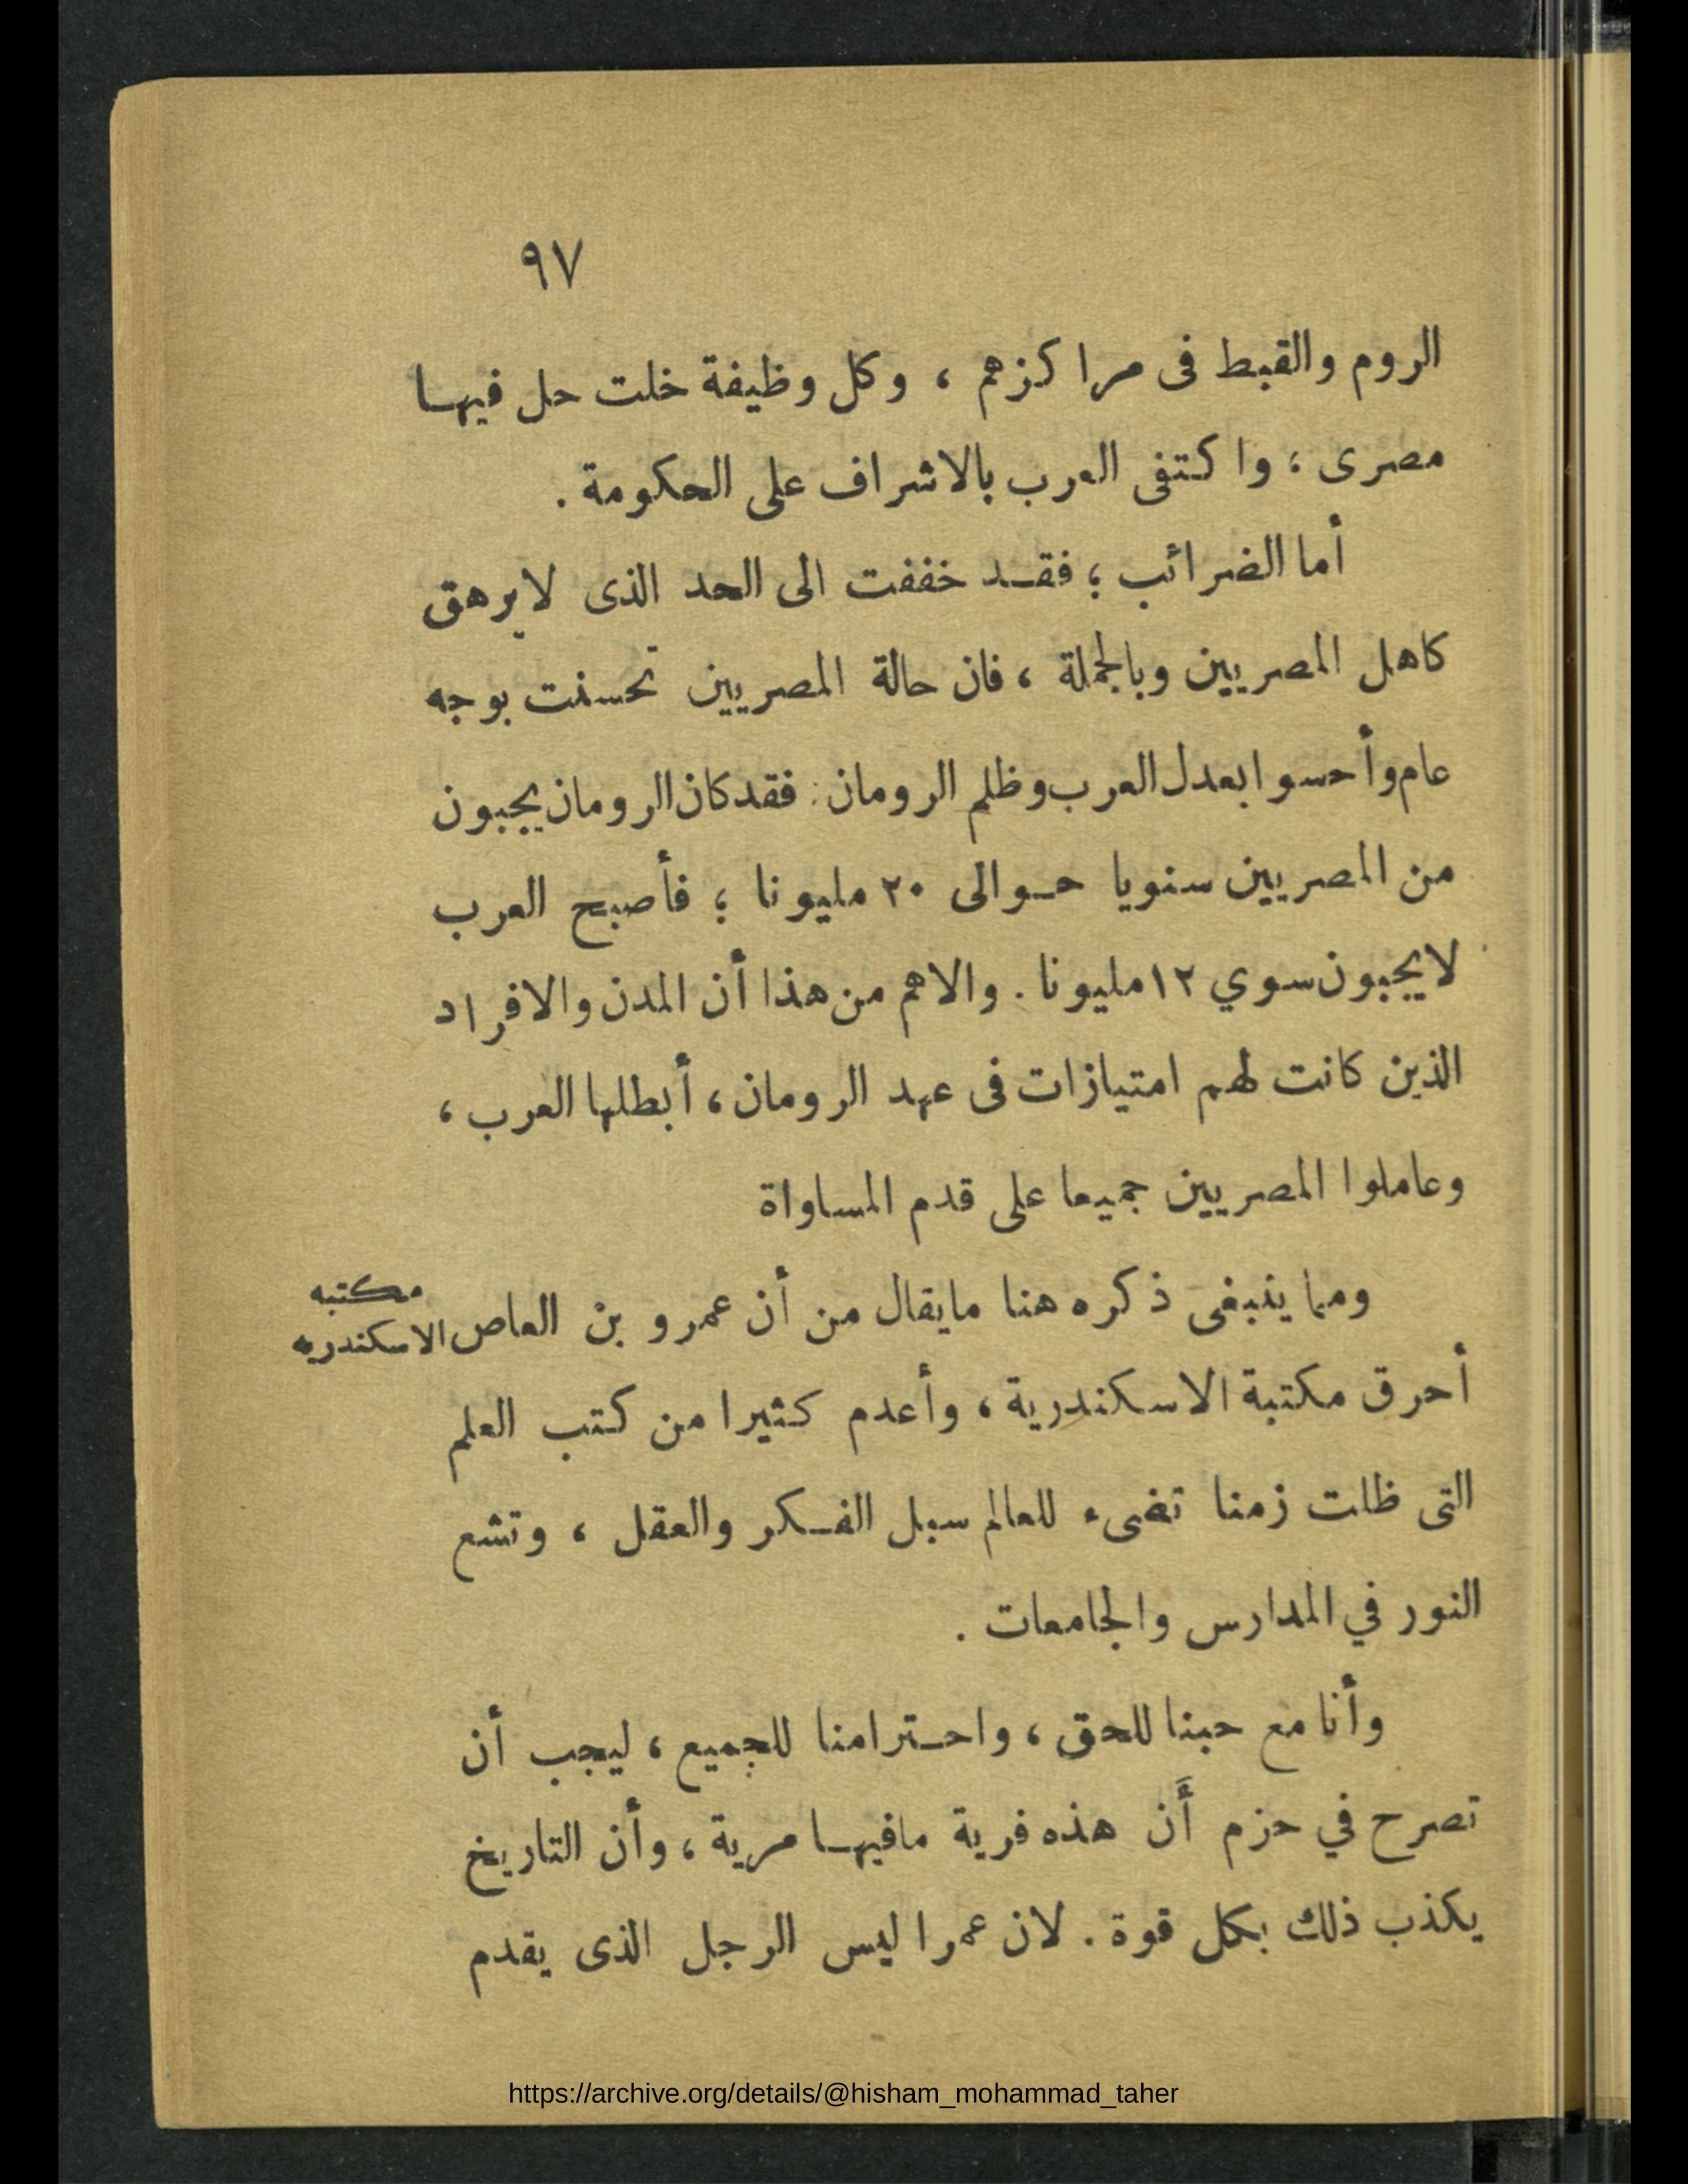 ٩٧
الروم والقبط فى مراكزهم ، وكل وظيفة خلت حل فيها
مصرى ؛ واكتفى العرب بالاشراف على الحكومة .
أما الضرائب ؛ فقد خففت الى الحد الذى لايرهق
كاهل المصريين وبالجملة ، فان حالة المصريين تحسنت بوجه
عام وأحسوا بعدل العرب وظلم الرومان : فقد كان الرومان يجبون
من المصريين سنويا حوالى ٢٠ مليونا ؛ فأصبح العرب
لايجبون سوي ١٢ مليونا . والاهم من هذا أن المدن والافراد
الذين كانت لهم امتيازات فى عهد الرومان ، أبطلها العرب ،
وعاملوا المصريين جميعا على قدم المساواة
ومما ينبغى ذكره هنا مايقال من أن عمرو بن العاص
مكتبه
الاسكندريه
أحرق مكتبة الاسكندرية ، وأعدم كثيرا من كتب العلم
التى ظلت زمنا تضىء للعالم سبل الفكر والعقل ، وتشع
النور في المدارس والجامعات .
وأنا مع حبنا للحق ، واحترامنا للجميع ، ليجب أن
تصرح في حزم أَن هذه فرية مافيها مرية ، وأن التاريخ
يكذب ذلك بكل قوة . لان عمرا ليس الرجل الذى يقدم
https://archive.org/details/@hisham_mohammad_taher